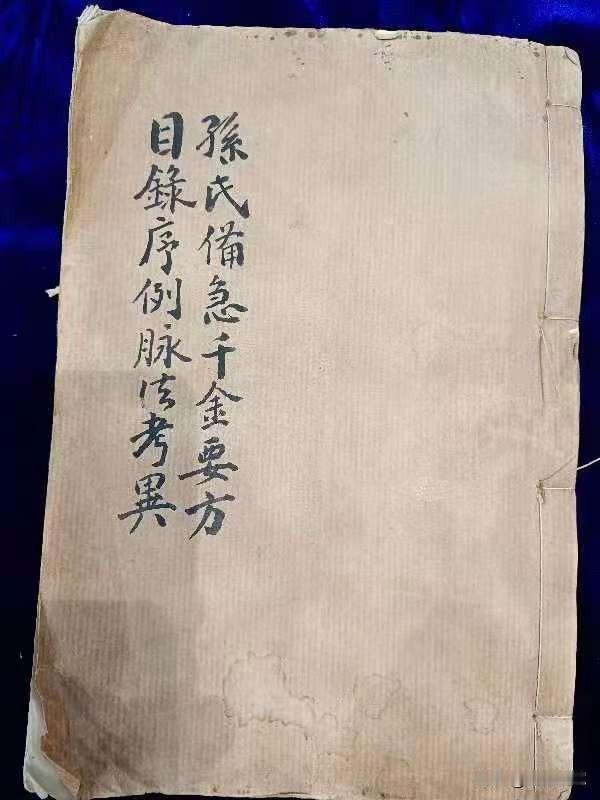 孫氏備急千金要方
目錄序例脉法考異